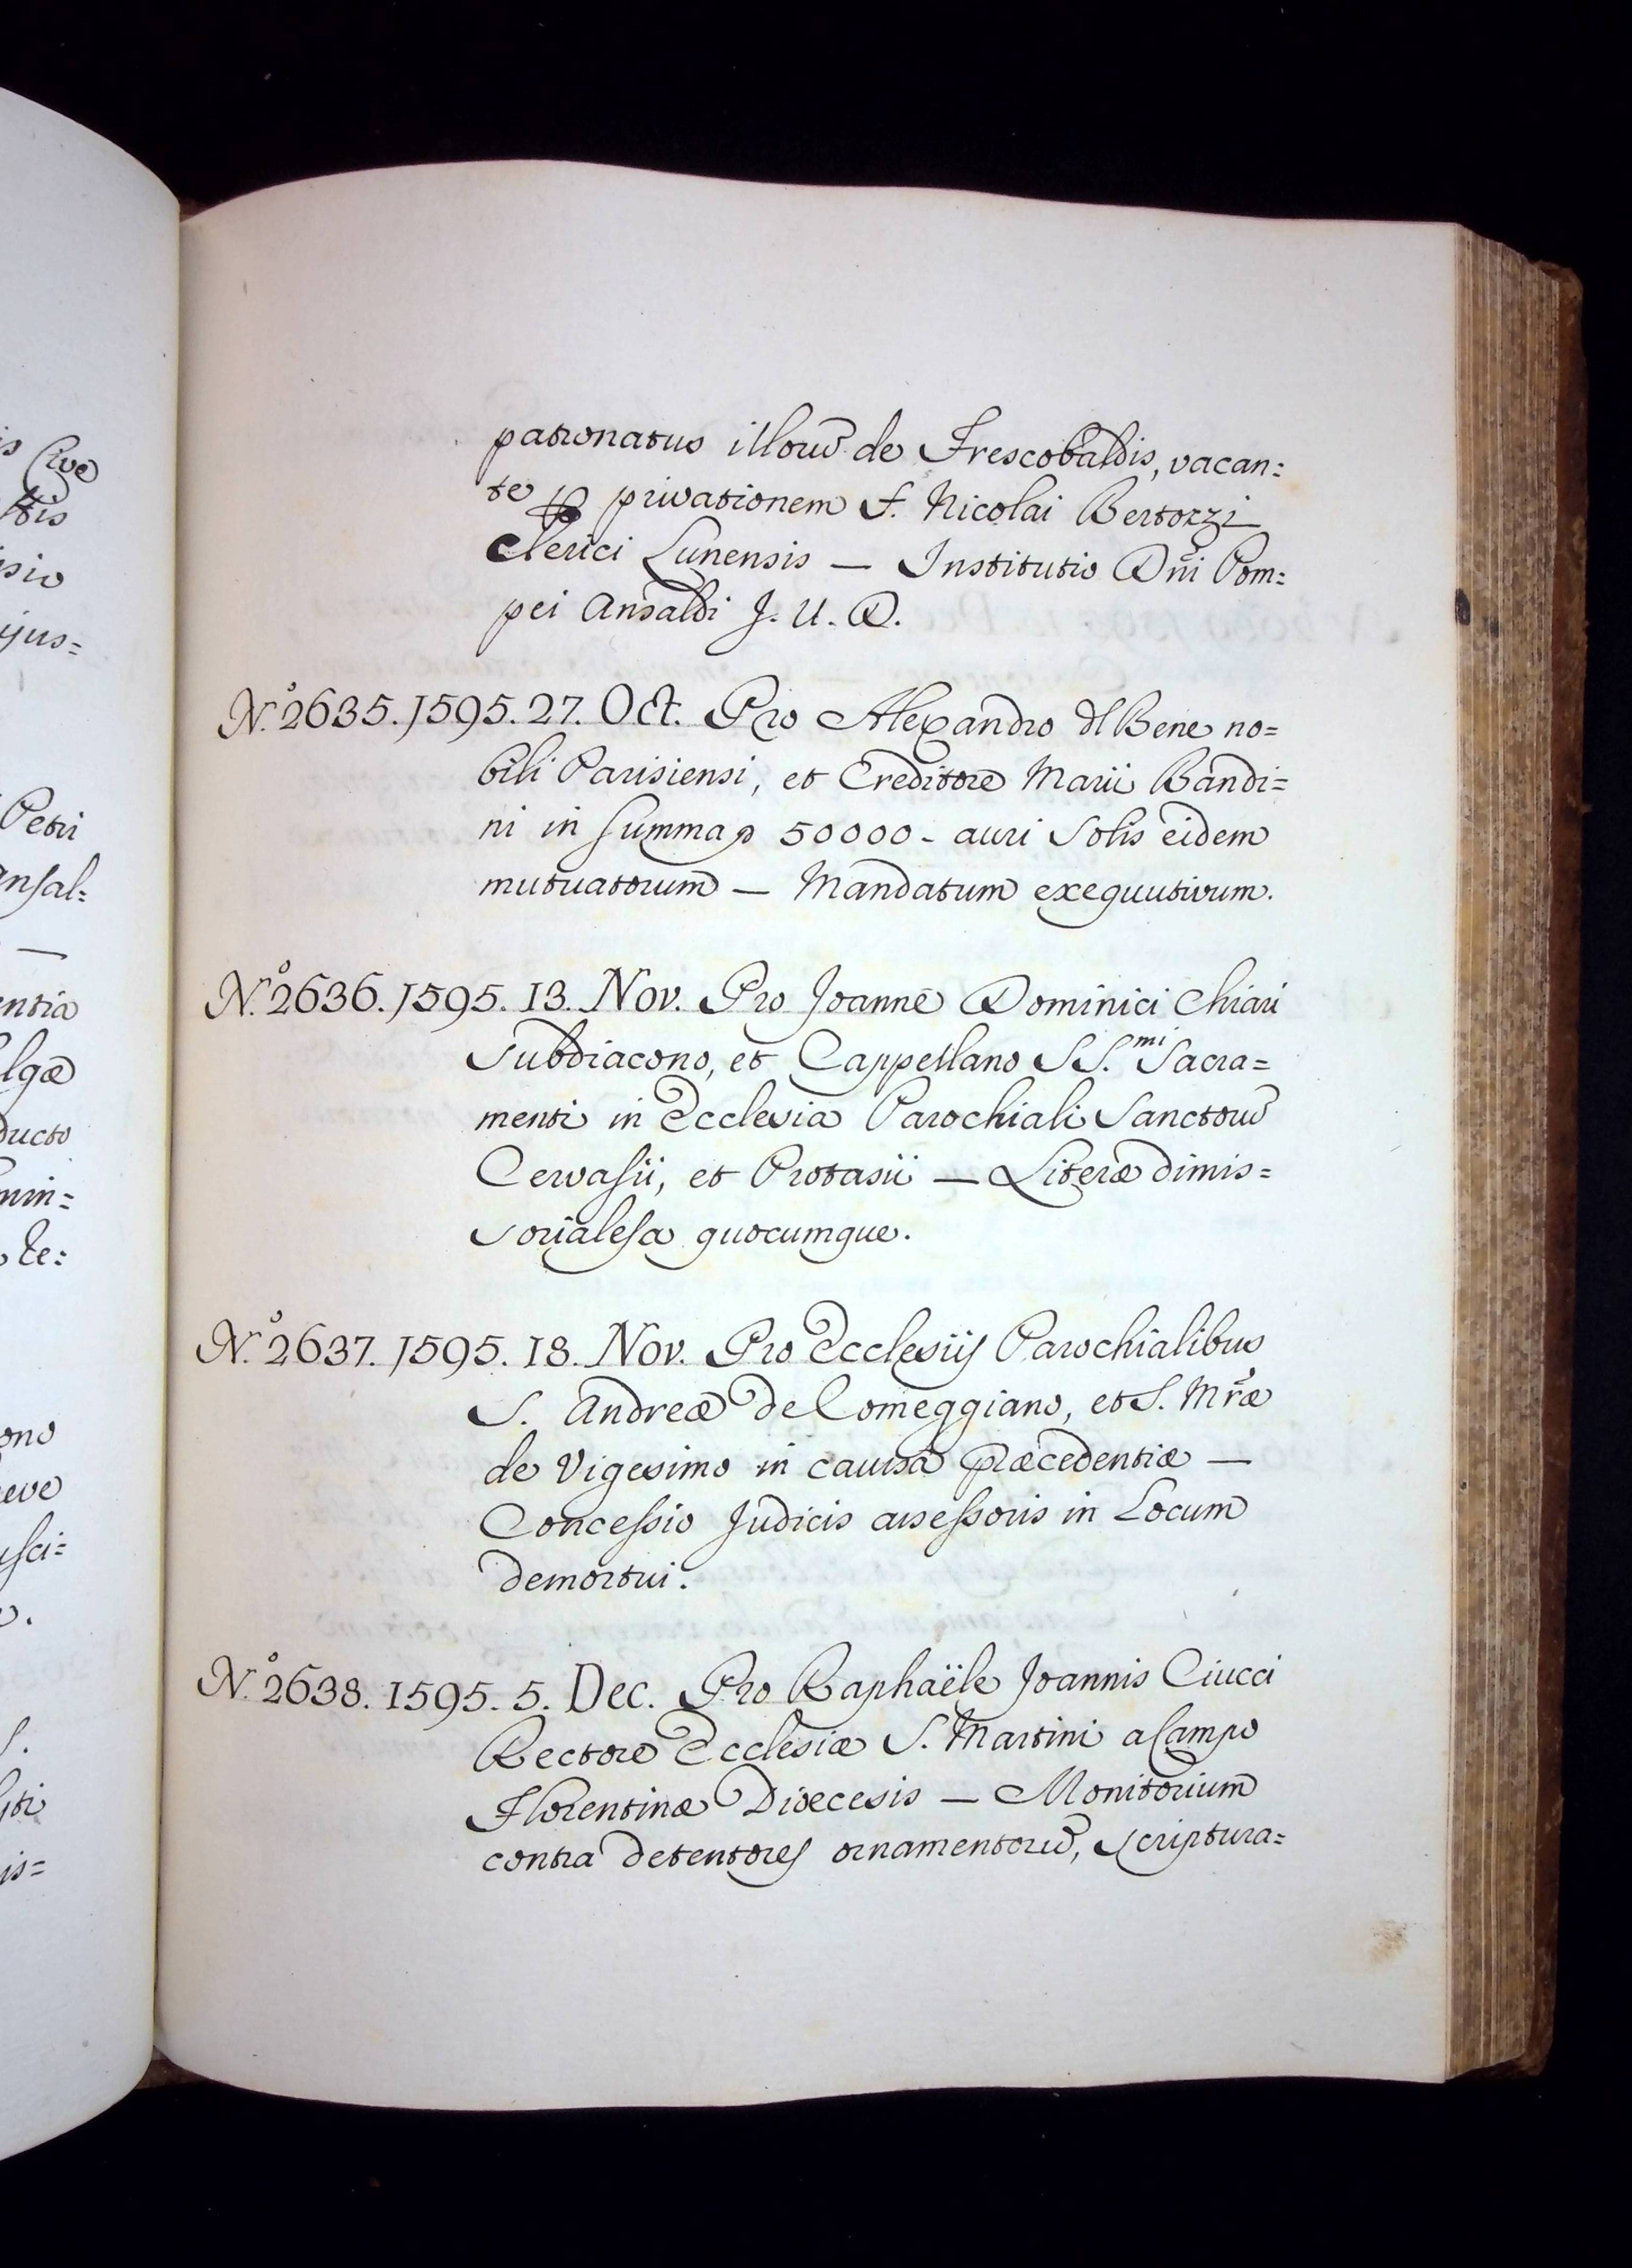 patronatus illorū de Frescobaldis, vacan:
te ꝑ privationem f. Nicolai Bertozzi
Clerici Lunensis — Institutio Dn̄i Pom:
pei Ansaldi J. U. D.
N.º 2635. 1595. 27. Oct. Pro Alexandro dl Bene no=
bili Parisiensi, et Creditore Marii Bandi=
ni in summa 50000 - auri Solis eidem
mutuatorum — Mandatum exequutivum.
N.º 2636. 1595. 13. Nov. Pro Joanne Dominici Chiari
Subdiacono, et Cappellano SS.mi Sacra=
menti in Ecclesia Parochiali Sanctorū
Cervasii, et Protasii — Literæ dimis=
soriales a quocumque.
N.º 2637. 1595. 18. Nov. Pro Ecclesiis Parochialibus
S. Andreæ de Comeggiano, et S. Mr̄æ
de Vigesimo in causa præcedentiæ —
Concessio Judicis assessoris in Locum
demortui.
N.º 2638. 1595. 5. Dec. Pro Raphaële Joannis Ciucci
Rectore Ecclesiæ S. Martini a Campo
Florentinæ Diœcesis — Monitorium
contra detentores ornamentorū, scriptura=